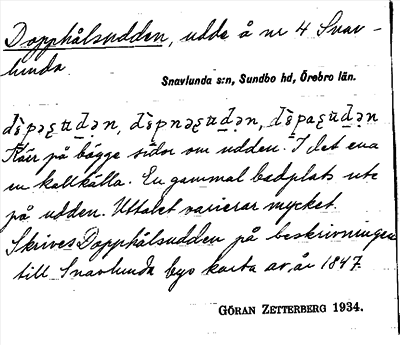 Dopphålsudden, udde å nr 4 Snav-
lunda
Snavlunda s:n, Sundbo hd, Örebro län.
Kärr på bägge sidor om udden. I det ena
en kallkälla. En gammal bedplats ute
på udden. Uttalet varierar mycket.
Skrives Dopphålsudden på beskrivningen
till Snavlunda bys karta av år 1847.
GÖRAN ZETTERBERG 1934.